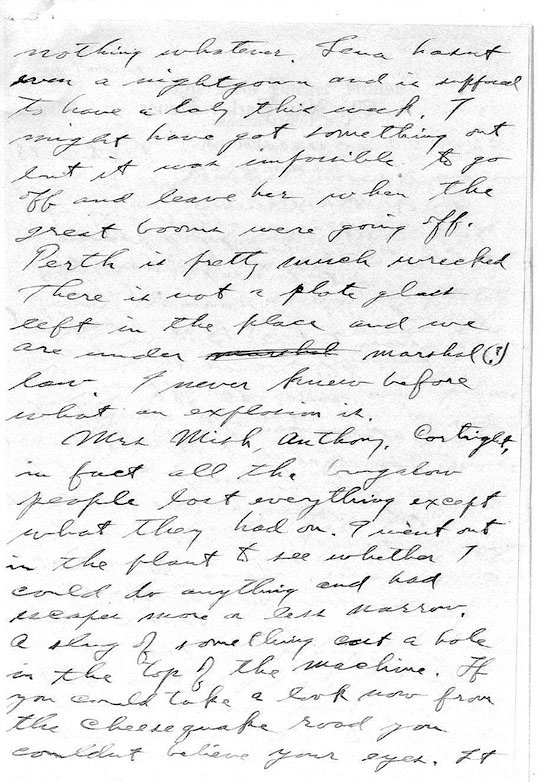 nothing whatever. Lena hasnt
even a nightgown and is supposed
to have a baby this week. I
might have got something out
but it was impossible to go
off and leave her when the
great booms were going off.
Perth is pretty much wrecked
There is not a plate glass
left in the place and we
are under marshal marshal(?)
law I never knew before
what an explosion is.
Mrs Mish, Anthony, Cortright,
in fact all the bungalow
people lost everything except
what they had on. I went out
in the plant to see whether I
could do anything and had
escapes more or less narrow.
A slug of something cut a hole
in the top of the machine. If
you could take a look now from
the cheesequake road you
couldnt believe your eyes. It